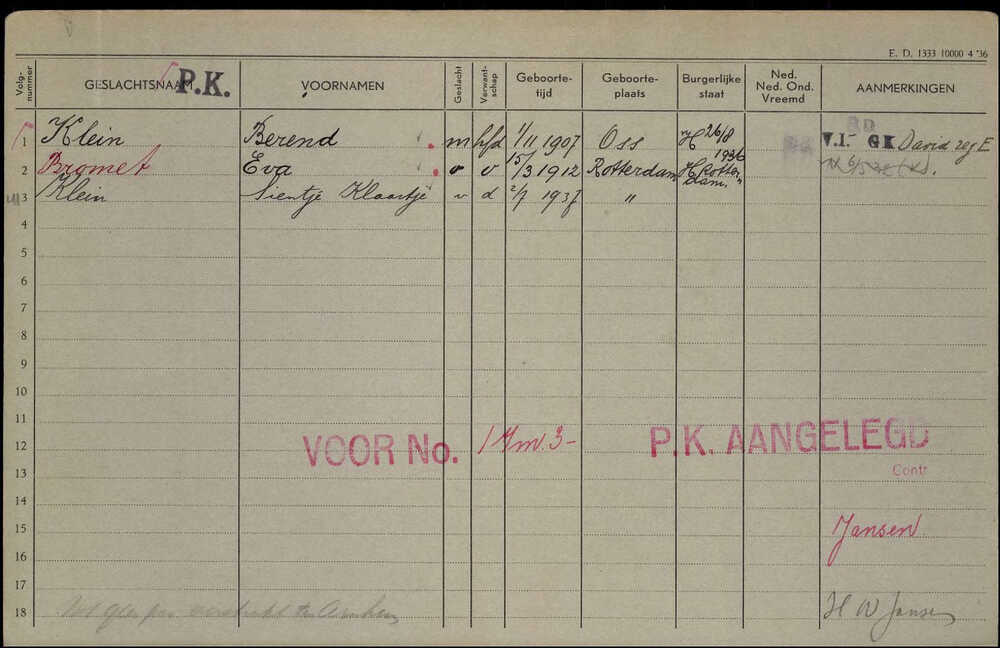 E. D. 1333 10000 4 '36
Volg-nummer GESLACHTSNAAM P.K. VOORNAMEN Geslacht Verwant-schap Geboorte-tijd Geboorte-plaats Burgerlijke staat Ned. Ned. Ond. Vreemd AANMERKINGEN
1 Klein Berend m hfd 1/11 1907 Oss H 26/8 1936 V.I. GK David zeg E
2 Bromet Eva v v 15/3 1912 Rotterdam H Rotter-dam.
3 Klein Sientje Klaartje v d 2/7 1937 "
4
5
6
7
8
9
10
11
12 VOOR No. 1 t/m 3- P.K. AANGELEGD
Contr
13
14
15 Jansen
16
17
18 H W Jansen